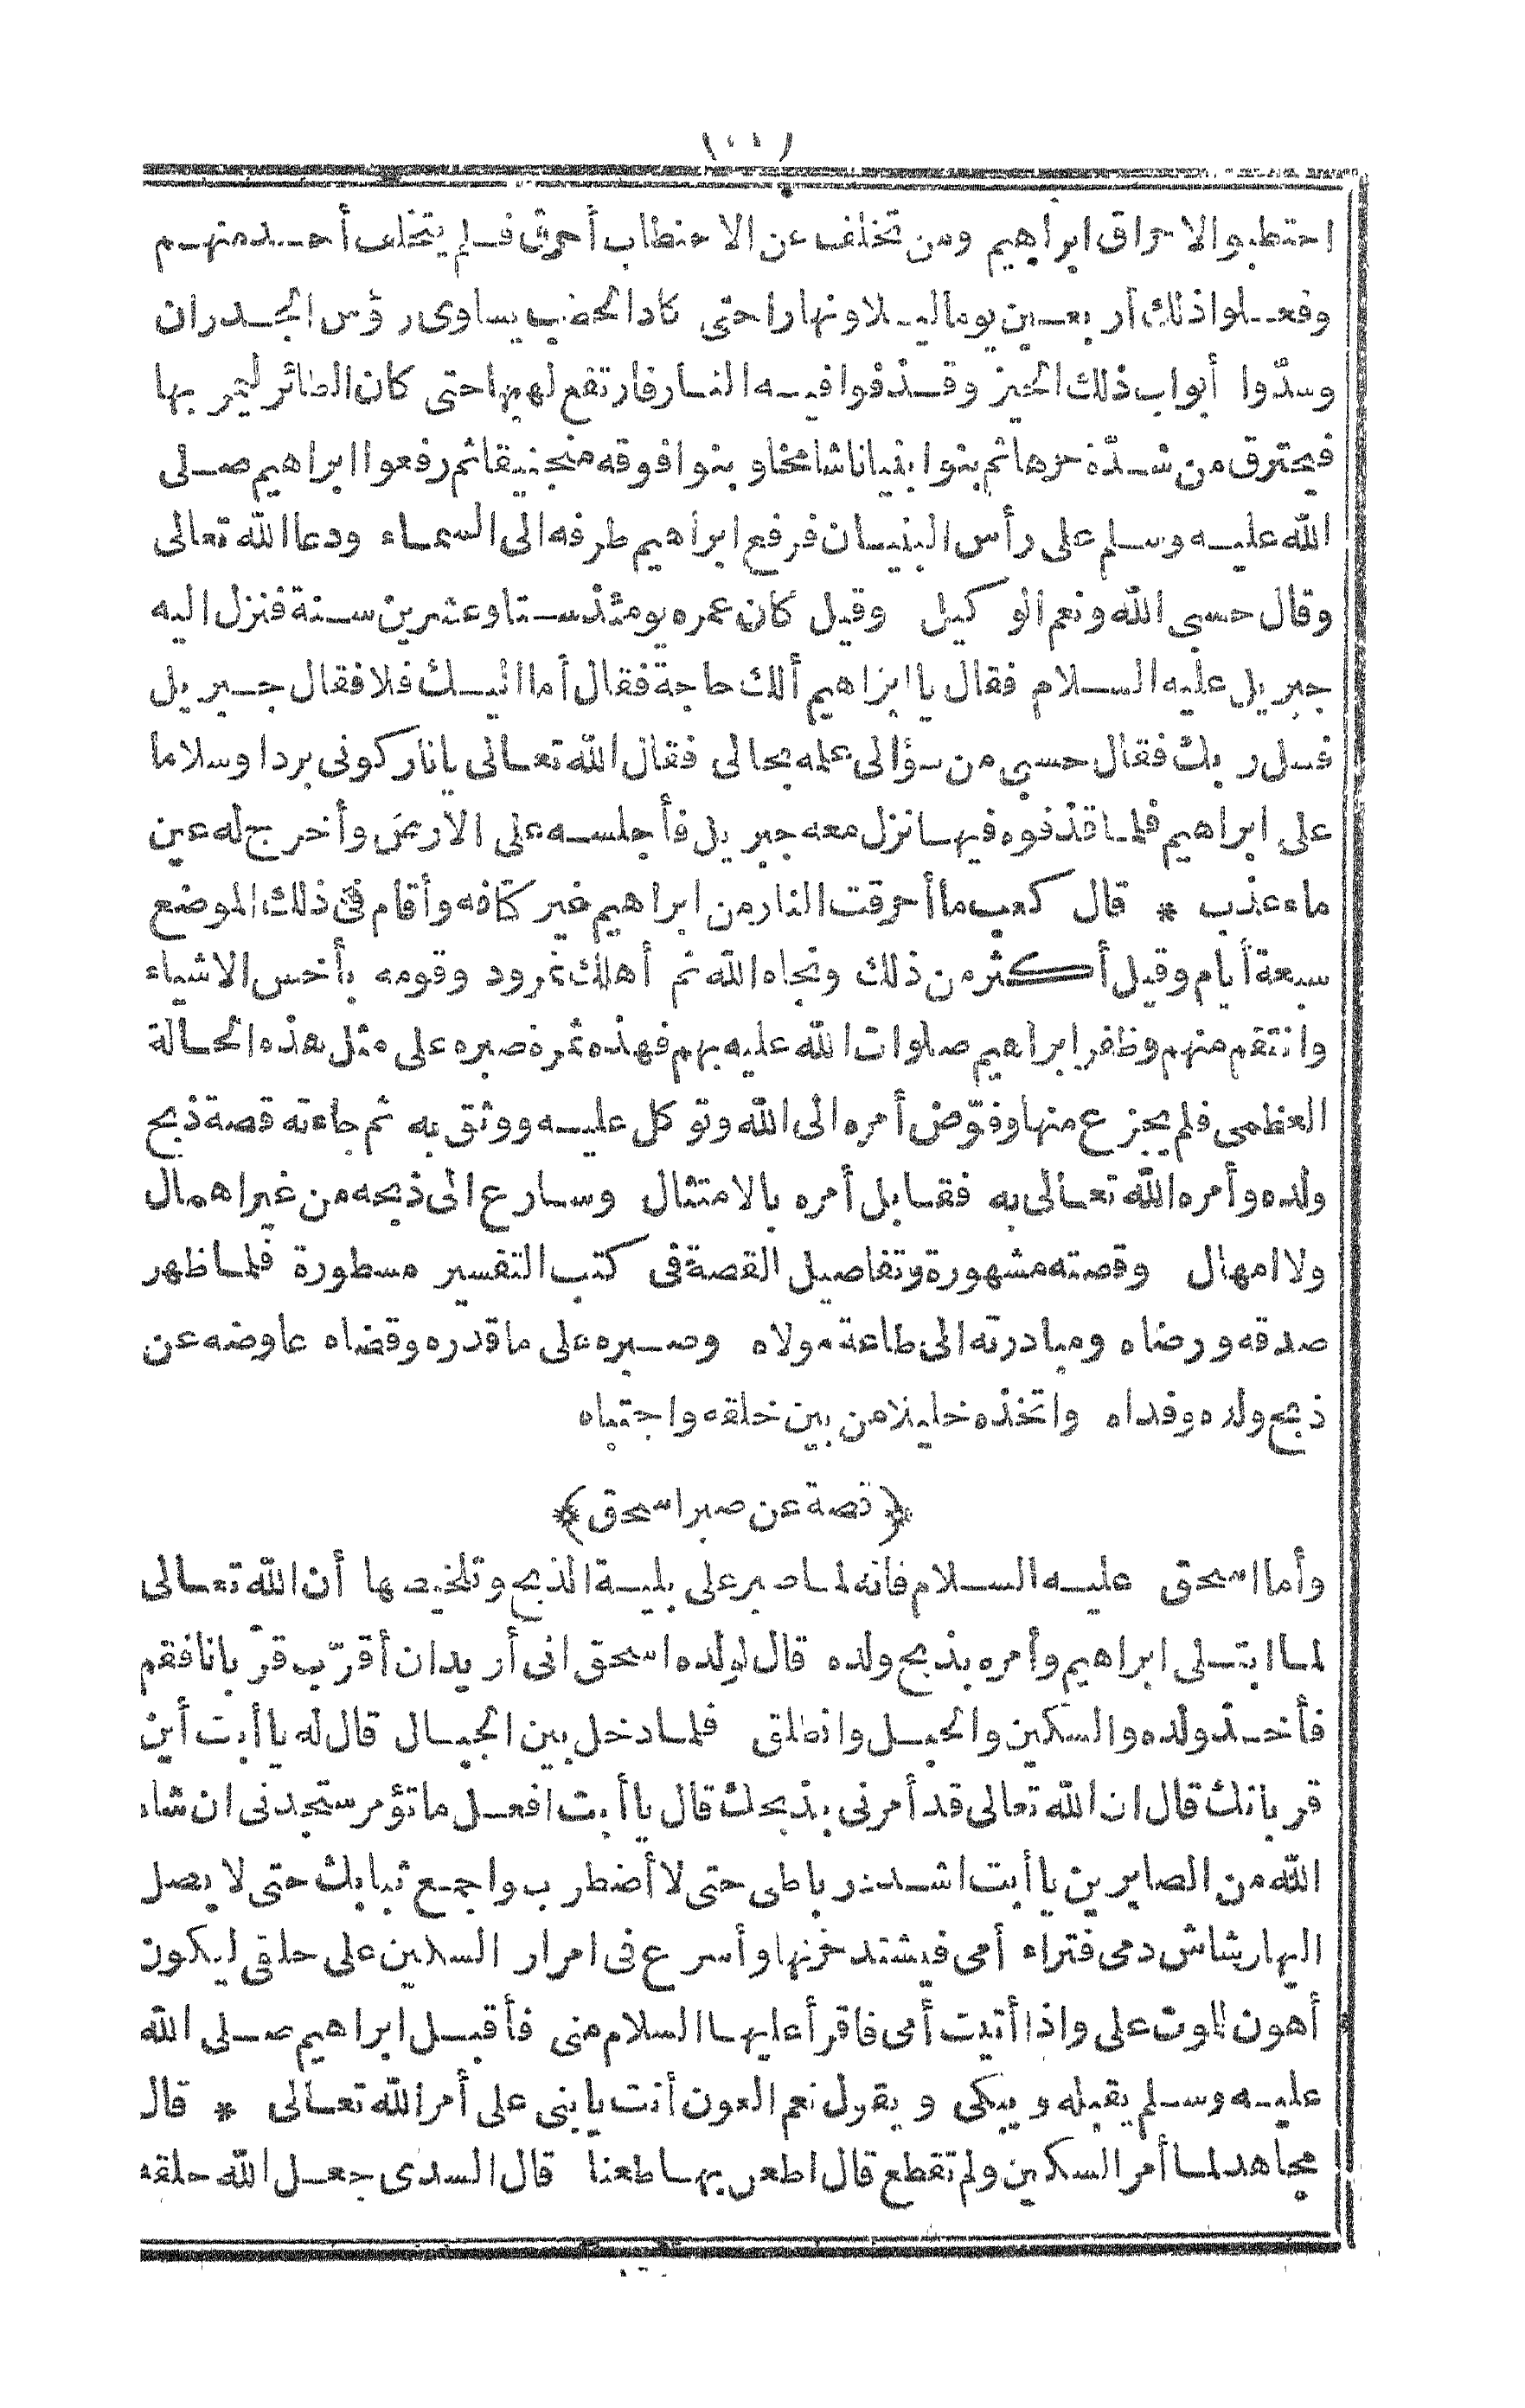 احتطبوا لاحراق ابراهيم ومن تخلف عن الاحتطاب أحرق فلم يتخلف أحد منهم
وفعلوا ذلك أربعين يوما ليلا ونهارا حتى كاد الحطب يساوى رؤس الجدران
وسدّوا أبواب ذلك الحيز وقذفوا فيه النار فارتفع لهبها حتى كان الطائر ليمر بها
فيحترق من شدّة حرها ثم بنوا بنيانا شامخا وبنوا فوقه منجنيقا ثم رفعوا ابراهيم صلى
الله عليه وسلم على رأس البنيان فرفع ابراهيم طرفه الى السماء ودعا الله تعالى
وقال حسبى الله ونعم الوكيل وقيل كان عمره يومئذ ستا وعشرين سنة فنزل اليه
جبريل عليه السلام فقال يا ابراهيم ألك حاجة فقال أما اليك فلا فقال جبريل
فسل ربك فقال حسبى من سؤالى علمه بحالى فقال الله تعالى يا نار كونى بردا وسلاما
على ابراهيم فلما قذفوه فيها نزل معه جبريل فأجلسه على الارض وأخرج له عين
ماء عذب * قال كعب ما أحرقت النار من ابراهيم غير كتافه وأقام فى ذلك الموضع
سبعة أيام وقيل أكثر من ذلك ونجاه الله ثم أهلك نمرود وقومه بأخس الاشياء
وانتقم منهم وظفر ابراهيم صلوات الله عليه بهم فهذه ثمرة صبره على مثل هذه الحالة
العظمى فلم يجزع منها وفوّض أمره الى الله وتوكل عليه ووثق به ثم جاءته قصة ذبح
ولده وأمره الله تعالى به فقابل أمره بالامتثال وسارع الى ذبحه من غير اهمال
ولا امهال وقصته مشهورة وتفاصيل القصة فى كتب التفسير مسطورة فلما ظهر
صدقه ورضاه ومبادرته الى طاعة مولاه وصبره على ما قدره وقضاه عاوضه عن
ذبح ولده وفداه واتخذه خليلا من بين خلقه واجتباه
﴿قصة عن صبر اسحق﴾
وأما اسحق عليه السلام فانه لما صبر على بلية الذبح وتلخيصها أن الله تعالى
لما ابتلى ابراهيم وأمره بذبح ولده قال لولده اسحق انى أريد ان أقرّب قرّبانا فقم
فأخذ ولده والسكين والحبل وانطلق فلما دخل بين الجبال قال له يا أبت أين
قربانك قال ان الله تعالى قد أمرنى بذبحك قال يا أبت افعل ما تؤمر ستجدنى ان شاء
الله من الصابرين يا أبت اشدد رباطى حتى لا أضطرب واجمع ثيابك حتى لا يصل
اليها رشاش دمى فتراه أمى فيشتد حزنها وأسرع فى امرار السكين على حلقى ليكون
أهون للموت على واذا أتيت أمى فاقرأ عليها السلام منى فأقبل ابراهيم صلى الله
عليه وسلم يقبله ويبكى ويقول نعم العون أنت يا بنى على أمر الله تعالى * قال
مجاهد لما أمر السكين ولم تقطع قال اطعن بها طعنا قال السدى جعل الله حلقه